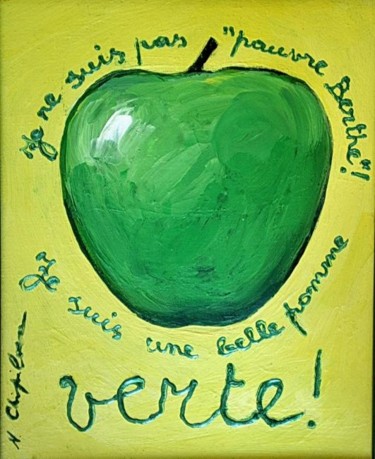 Je ne suis pas "pauvre Berthe"!
Je suis une belle pomme
verte!